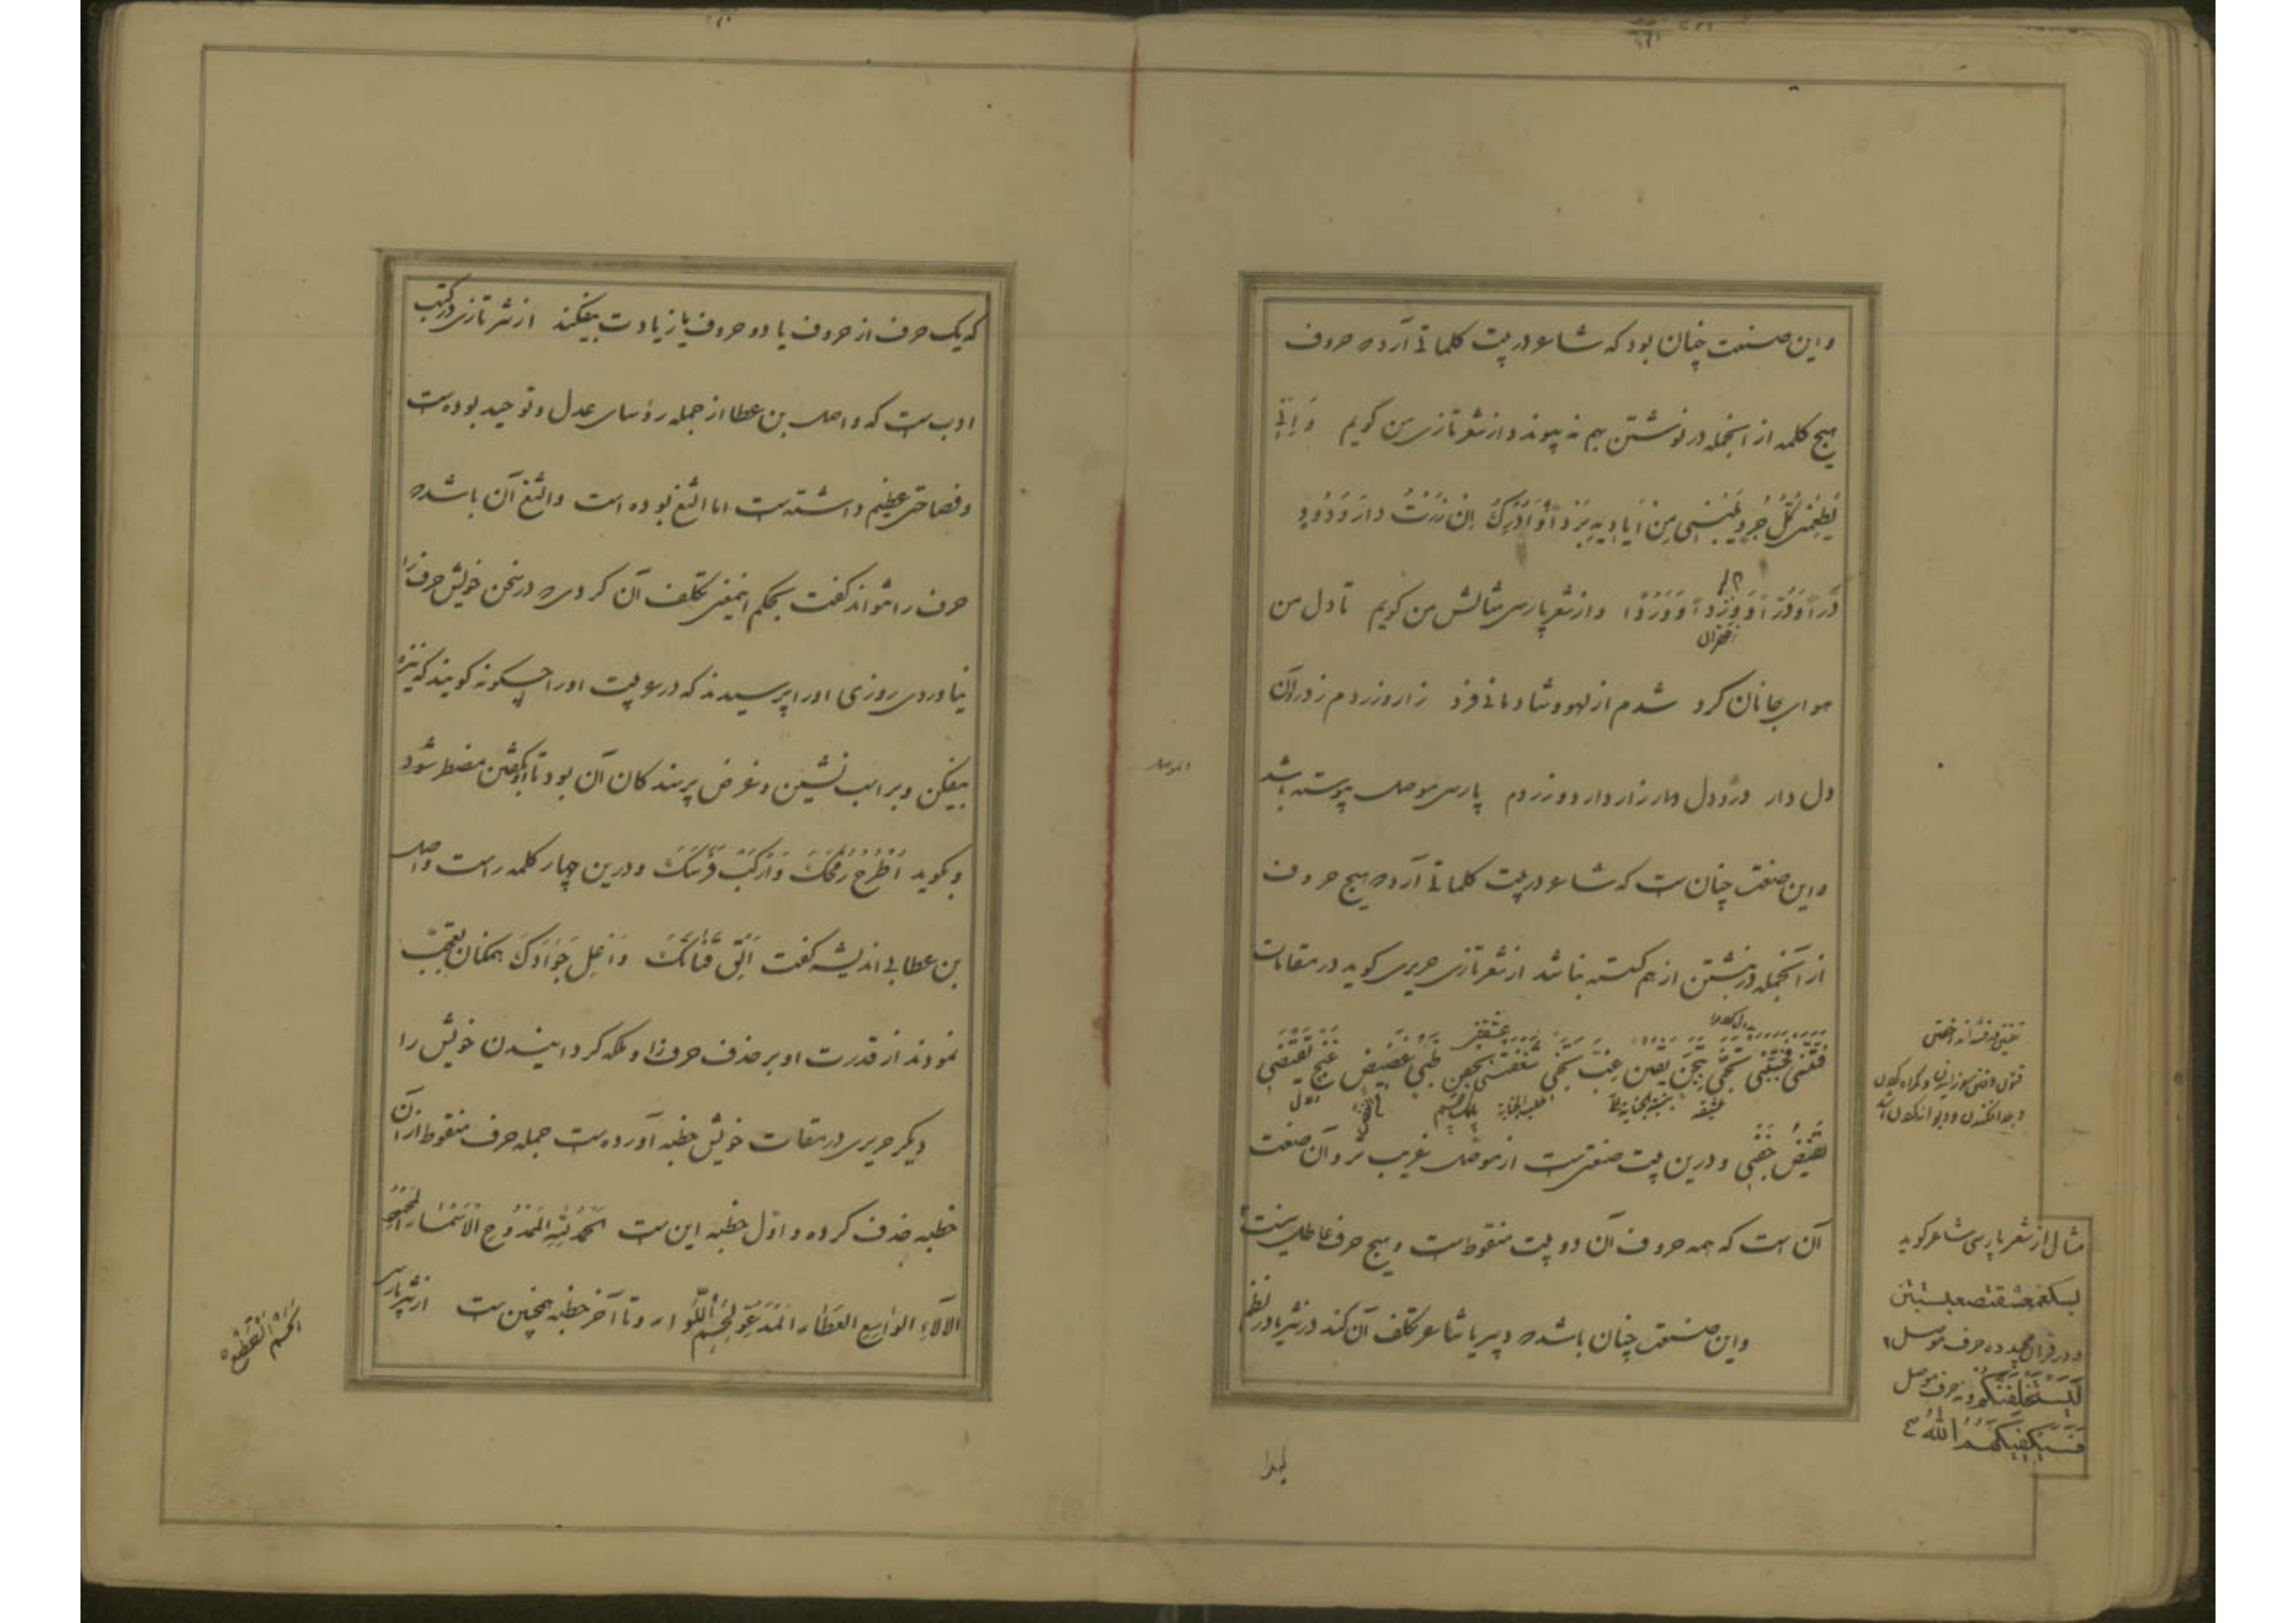 و این صنعت چنان بود که شاعر در بیت کلماتی آرد که حروف
هیچ کلمه از آنجمله در نوشتن بهم نه پیوندد از شعر تازی من کویم وَ اِنّی
اِنْ زُرْتُ دارَ وَدُودٍ
و از شعر پارسی مثالش من کویم تا دل من
هوای جانان کرد شدم از لهو و شادمانی فرد زار و زردم ز درد آن
دل دار درد دل دار زار دارد و زردم پارسی موصل پیوسته باشد
و این صنعت چنان ست که شاعر در بیت کلماتی آرد که هیچ حروف
از آنجمله در نبشتن از هم کسسته نباشد از شعر تازی حریری کوید در مقامات
فَتَنَتْنی فَجَنَّنَتْنی تَجَنّی بِتَجَنٍّ یَفْتَنُّ غِبَّ تَجَنّی شَغَفَتْنی بِجَفْنِ ظَبْیٍ غَضیضٍ غَنِجٍ یَقْتَضی
تَغَیُّضَ جَفْنی و درین بیت صنعتی ست از موصل غریب تر و آن صنعت
آن است که همه حروف آن دو بیت منقوط ست و هیچ حرف عاطل نیست
و این صنعت چنان باشد که دبیر یا شاعر تکلف آن کند در نثر یا در نظم
مثال از شعر پارسی شاعر کوید
و در قرآن مجید ده حرف موصل
لَیَسْتَخْلِفَنَّکُمْ و نه حرف موصل
فَسَیَکْفیکَهُمُ اللّٰهُ
که یک حرف از حروف یا دو حروف یا زیادت بیفکند از نثر تازی در کتب
ادب ست که واصل بن عطا از جمله رؤسای عدل و توحید بوده ست
و فصاحتی عظیم داشته ست اما الثغ بوده است و الثغ آن باشد که
حرف را نتواند کفت بحکم اینمعنی تکلف آن کردی که در سخن خویش حرف را
نیاوردی روزی او را پرسیدند که در عربیت او را چکونه کویند که نیزه
بیفکن و بر اسب نشین و غرض پرسندکان آن بود تا او بکفتن مضطر شود
و بکوید اُطْرُحْ رُمْحَکَ وَ ارْکَبْ فَرَسَکَ و درین چهار کلمه راست واصل
بن عطا بی اندیشه کفت اَلْقِ قَنٰاتَکَ وَ اعْلُ جَوٰادَکَ همکنان تعجب
نمودند از قدرت او بر حذف حرف را و ملکه کردانیدن خویش را
دیکر حریری در مقامات خویش خطبه آورده ست جمله حرف منقوط از آن
خطبه حذف کرده و اوّل خطبه این ست اَلْحَمْدُ لِلّٰهِ الْمَمْدُوحِ الْاَسْمٰاءِ الْمَحْمُودِ
الْآلاءِ الْوٰاسِعِ الْعَطٰاءِ الْمَدْعُوِّ لِحَسْمِ اللَّأْوٰاءِ و تا آخر خطبه همچنین ست از نثر پارسی